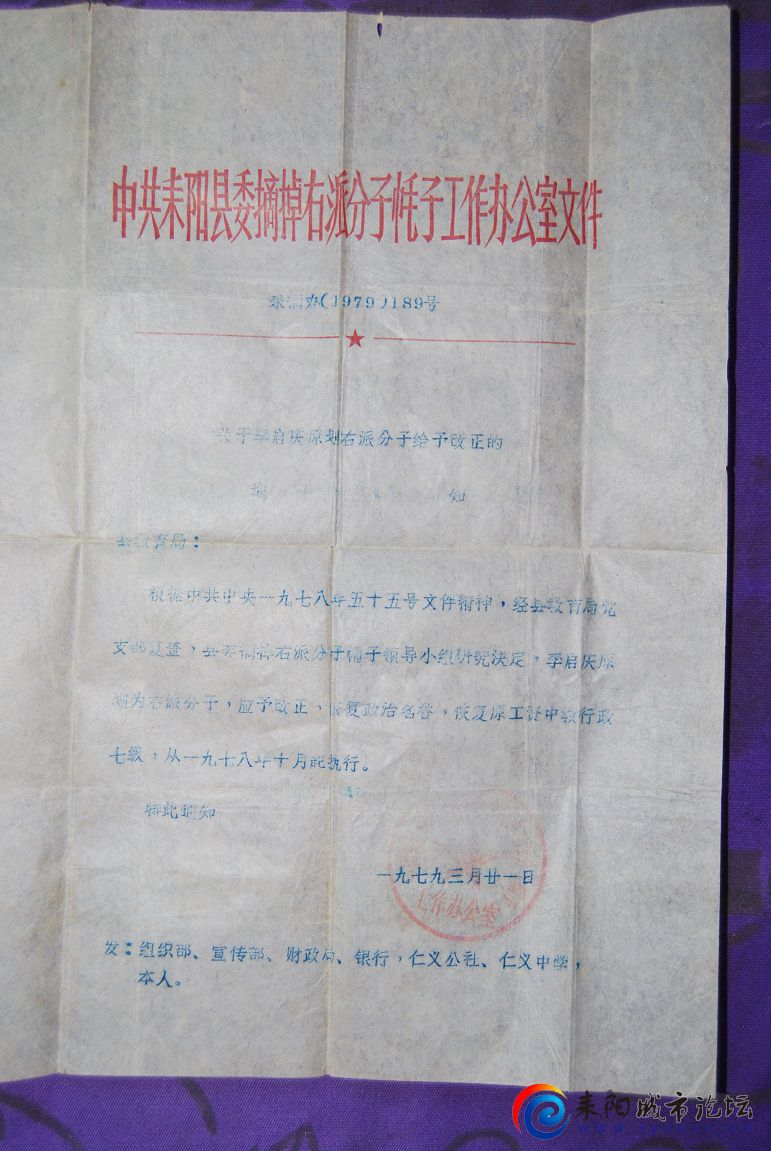 中共耒阳县委摘掉右派分子帽子工作办公室文件
耒摘办(1979)189号
关于李启庆原划右派分子给予改正的
通知
县教育局：
根据中共中央一九七八年五十五号文件精神，经县教育局党
支部复查，县委摘掉右派分子帽子领导小组研究决定，李启庆原
划为右派分子，应予改正，恢复政治名誉，恢复原工资中教行政
七级，从一九七八年十月起执行。
特此通知
一九七九三月廿一日
工作办公室
发：组织部、宣传部、财政局、银行，仁义公社、仁义中学，
本人。
耒阳城市论坛